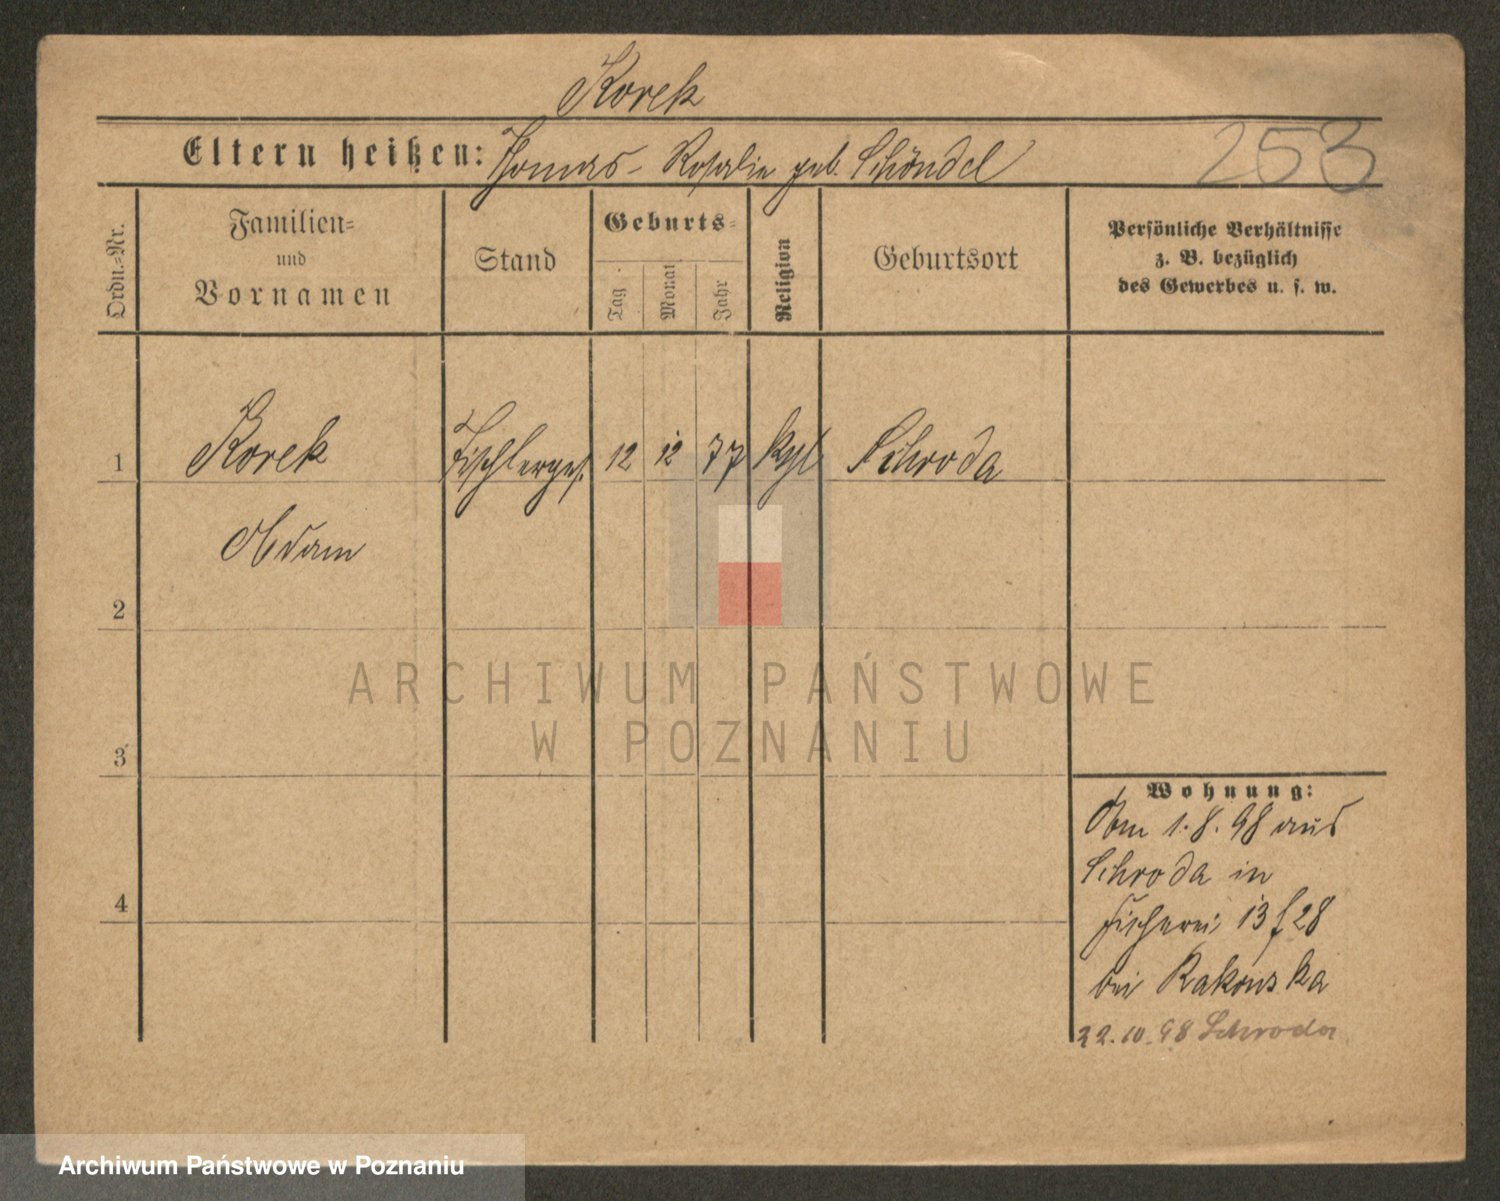 Korek
Eltern heißen: Thomas - Rosalie geb. Schöndel
253
Ordn.-Nr.
Familien-
und
Vornamen
Stand
Geburts-
Tag
Monat
Jahr
Religion
Geburtsort
Persönliche Verhältnisse
z. B. bezüglich
des Gewerbes u. s. w.
1 Korek Tischlerges. 12 12 77 kath Schroda
Adam
2
3
4
Wohnung:
Am 1.8.98 aus
Schroda in
Fischerei 13 f 28
bei Rakowska
22.10.98 Schroda
ARCHIWUM PAŃSTWOWE
W POZNANIU
Archiwum Państwowe w Poznaniu